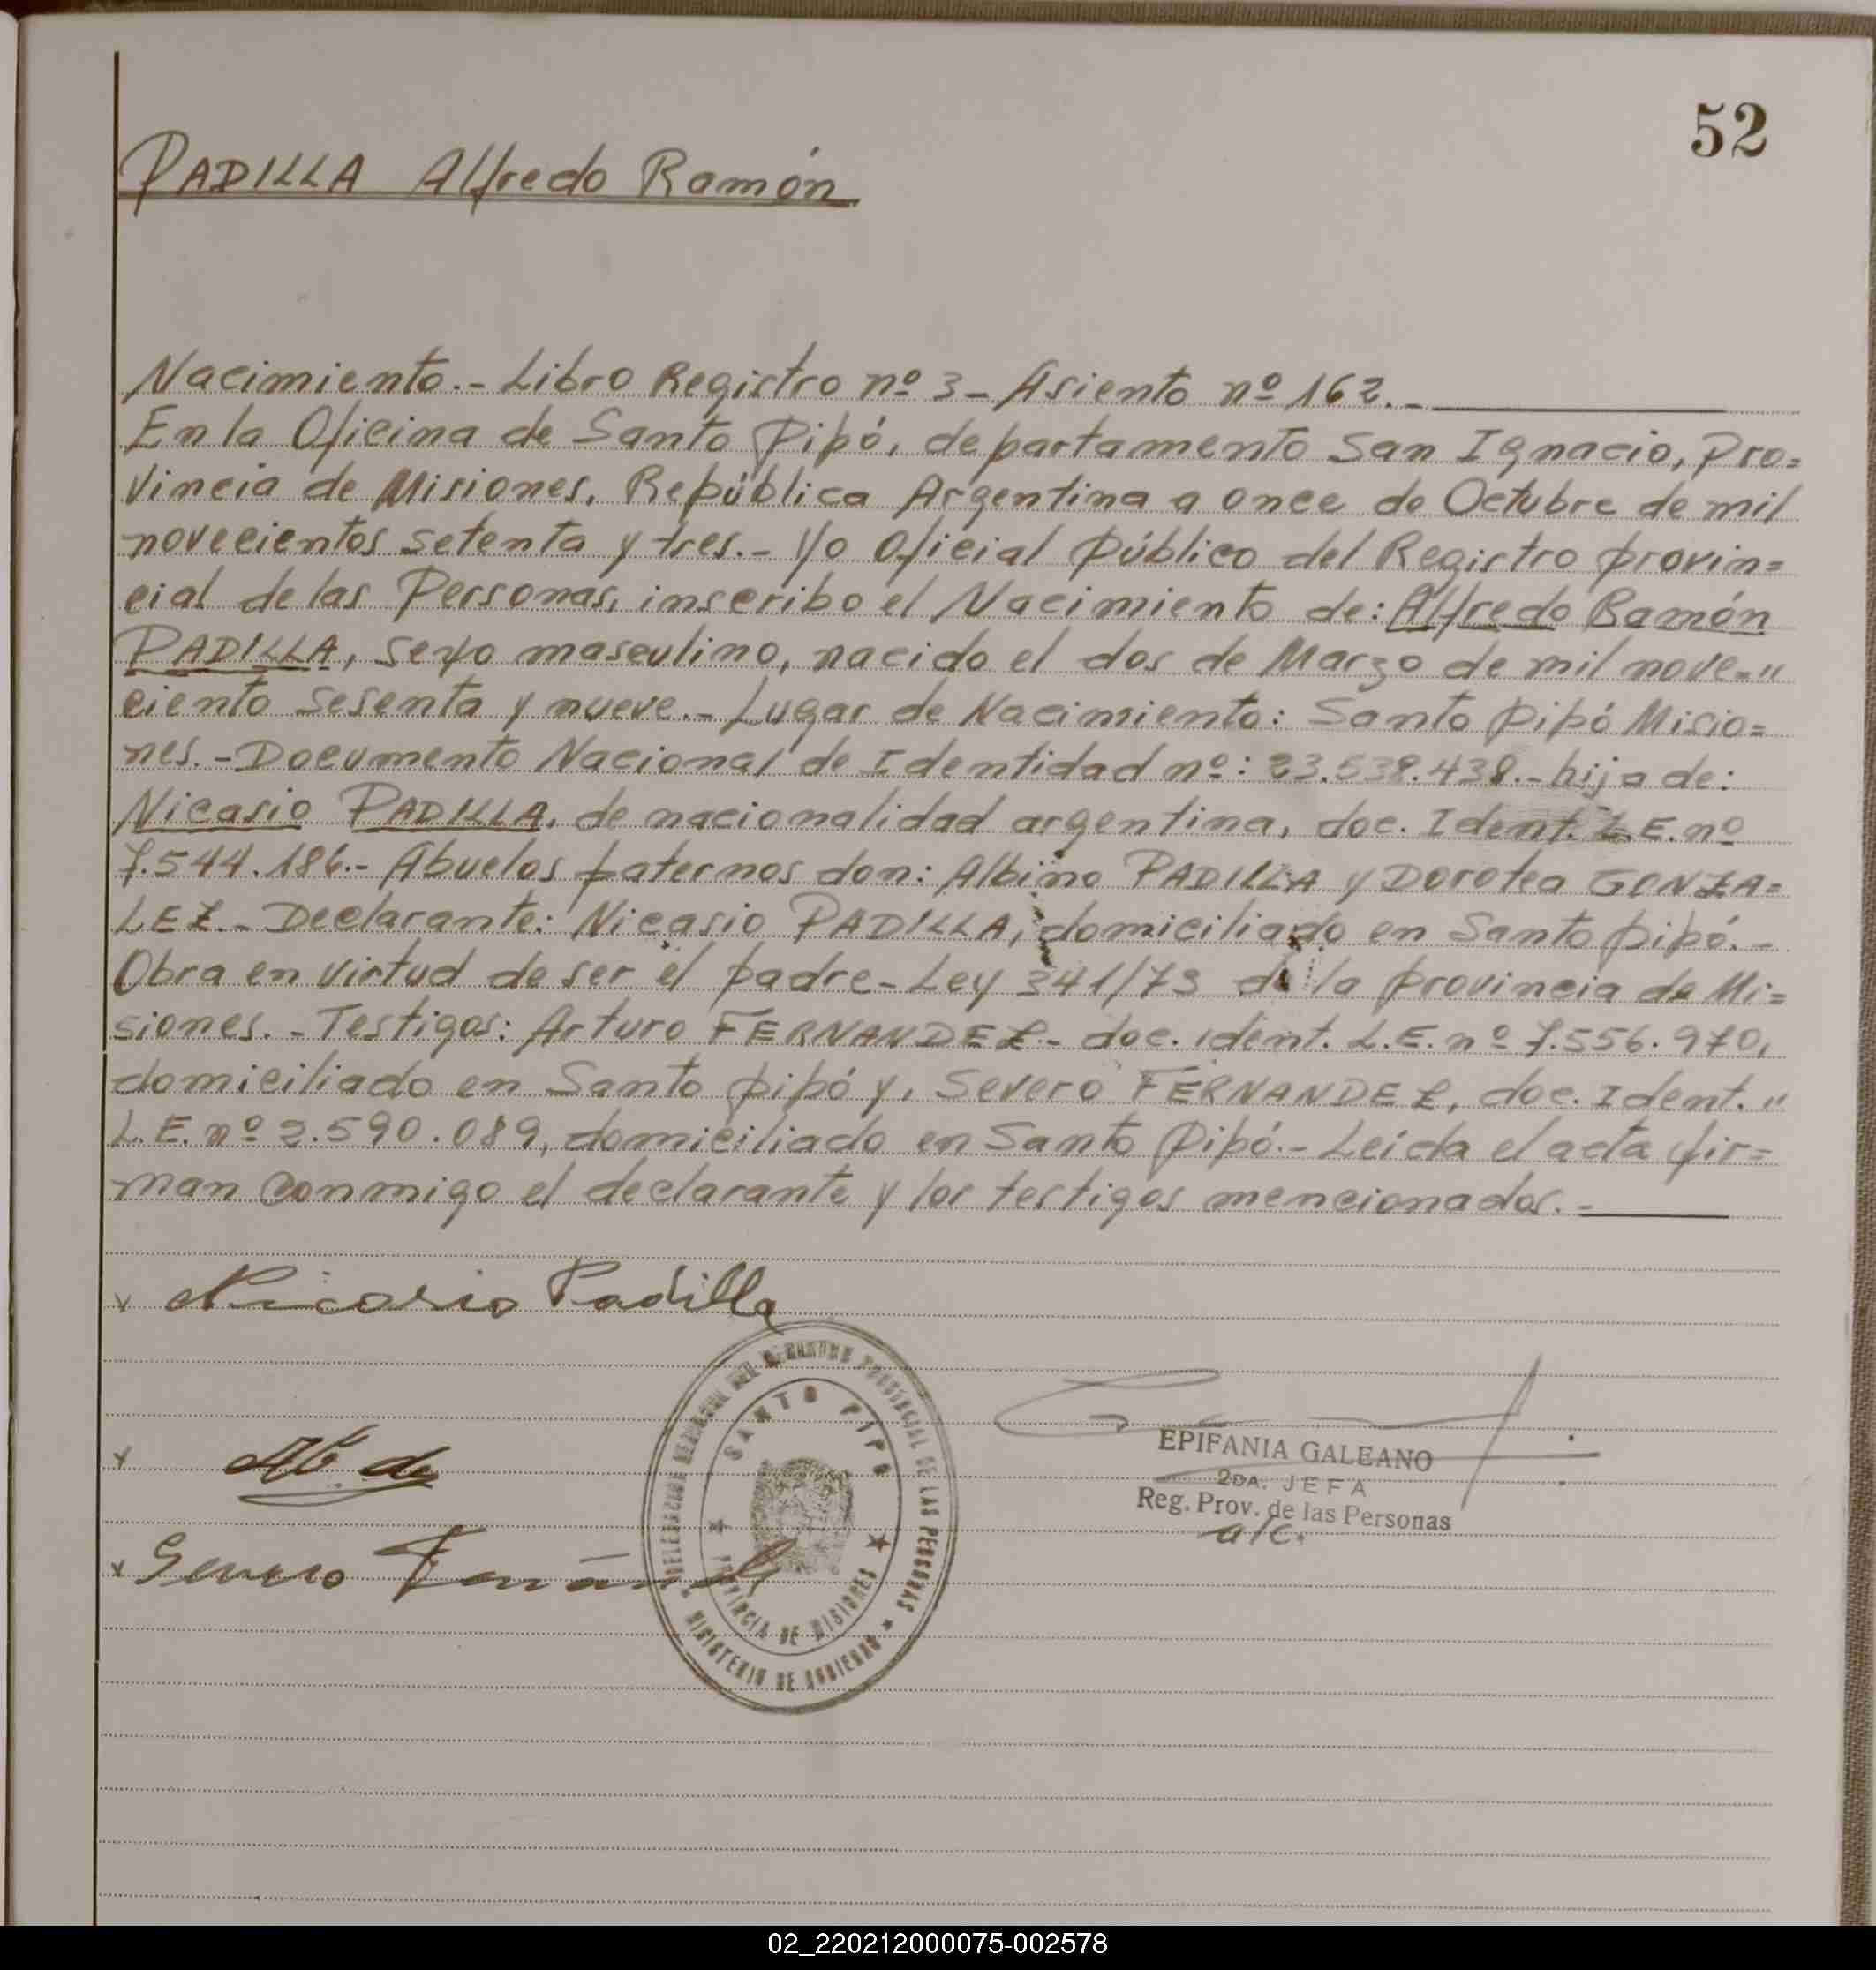 52
PADILLA Alfredo Ramón
Nacimiento.- Libro Registro nº 3- Asiento nº 162.-
En la Oficina de Santo Pipó, departamento San Ignacio, Pro=
vincia de Misiones, República Argentina a once de Octubre de mil
novecientos setenta y tres.- Yo Oficial Público del Registro provin=
cial de las Personas, inscribo el Nacimiento de: Alfredo Ramón
PADILLA, sexo masculino, nacido el dos de Marzo de mil nove="
ciento sesenta y nueve.- Lugar de Nacimiento: Santo Pipó Misio=
nes.- Documento Nacional de Identidad nº: 23.538.438.- hijo de:
Nicasio PADILLA, de nacionalidad argentina, doc. Ident. L.E. nº
7.544.186.- Abuelos paternos don: Albino PADILLA y Dorotea GONZA=
LEZ.- Declarante: Nicasio PADILLA, domiciliado en Santo Pipó.-
Obra en virtud de ser el padre- Ley 341/73 de la provincia de Mi=
siones.- Testigos: Arturo FERNANDEZ- doc. ident. L.E. nº 7.556.970,
domiciliado en Santo Pipó y, Severo FERNANDEZ, doc. Ident. "
L.E. nº 2.590.089, domiciliado en Santo Pipó.- Leída el acta fir=
man conmigo el declarante y los testigos mencionados.-
Nicasio Padilla
DELEGACION DEL REGISTRO PROVINCIAL DE LAS PERSONAS
SANTO PIPO
PROVINCIA DE MISIONES
MINISTERIO DE GOBIERNO
EPIFANIA GALEANO
2DA. JEFA
Reg. Prov. de las Personas
a/c.
Severo Fernández
02_220212000075-002578